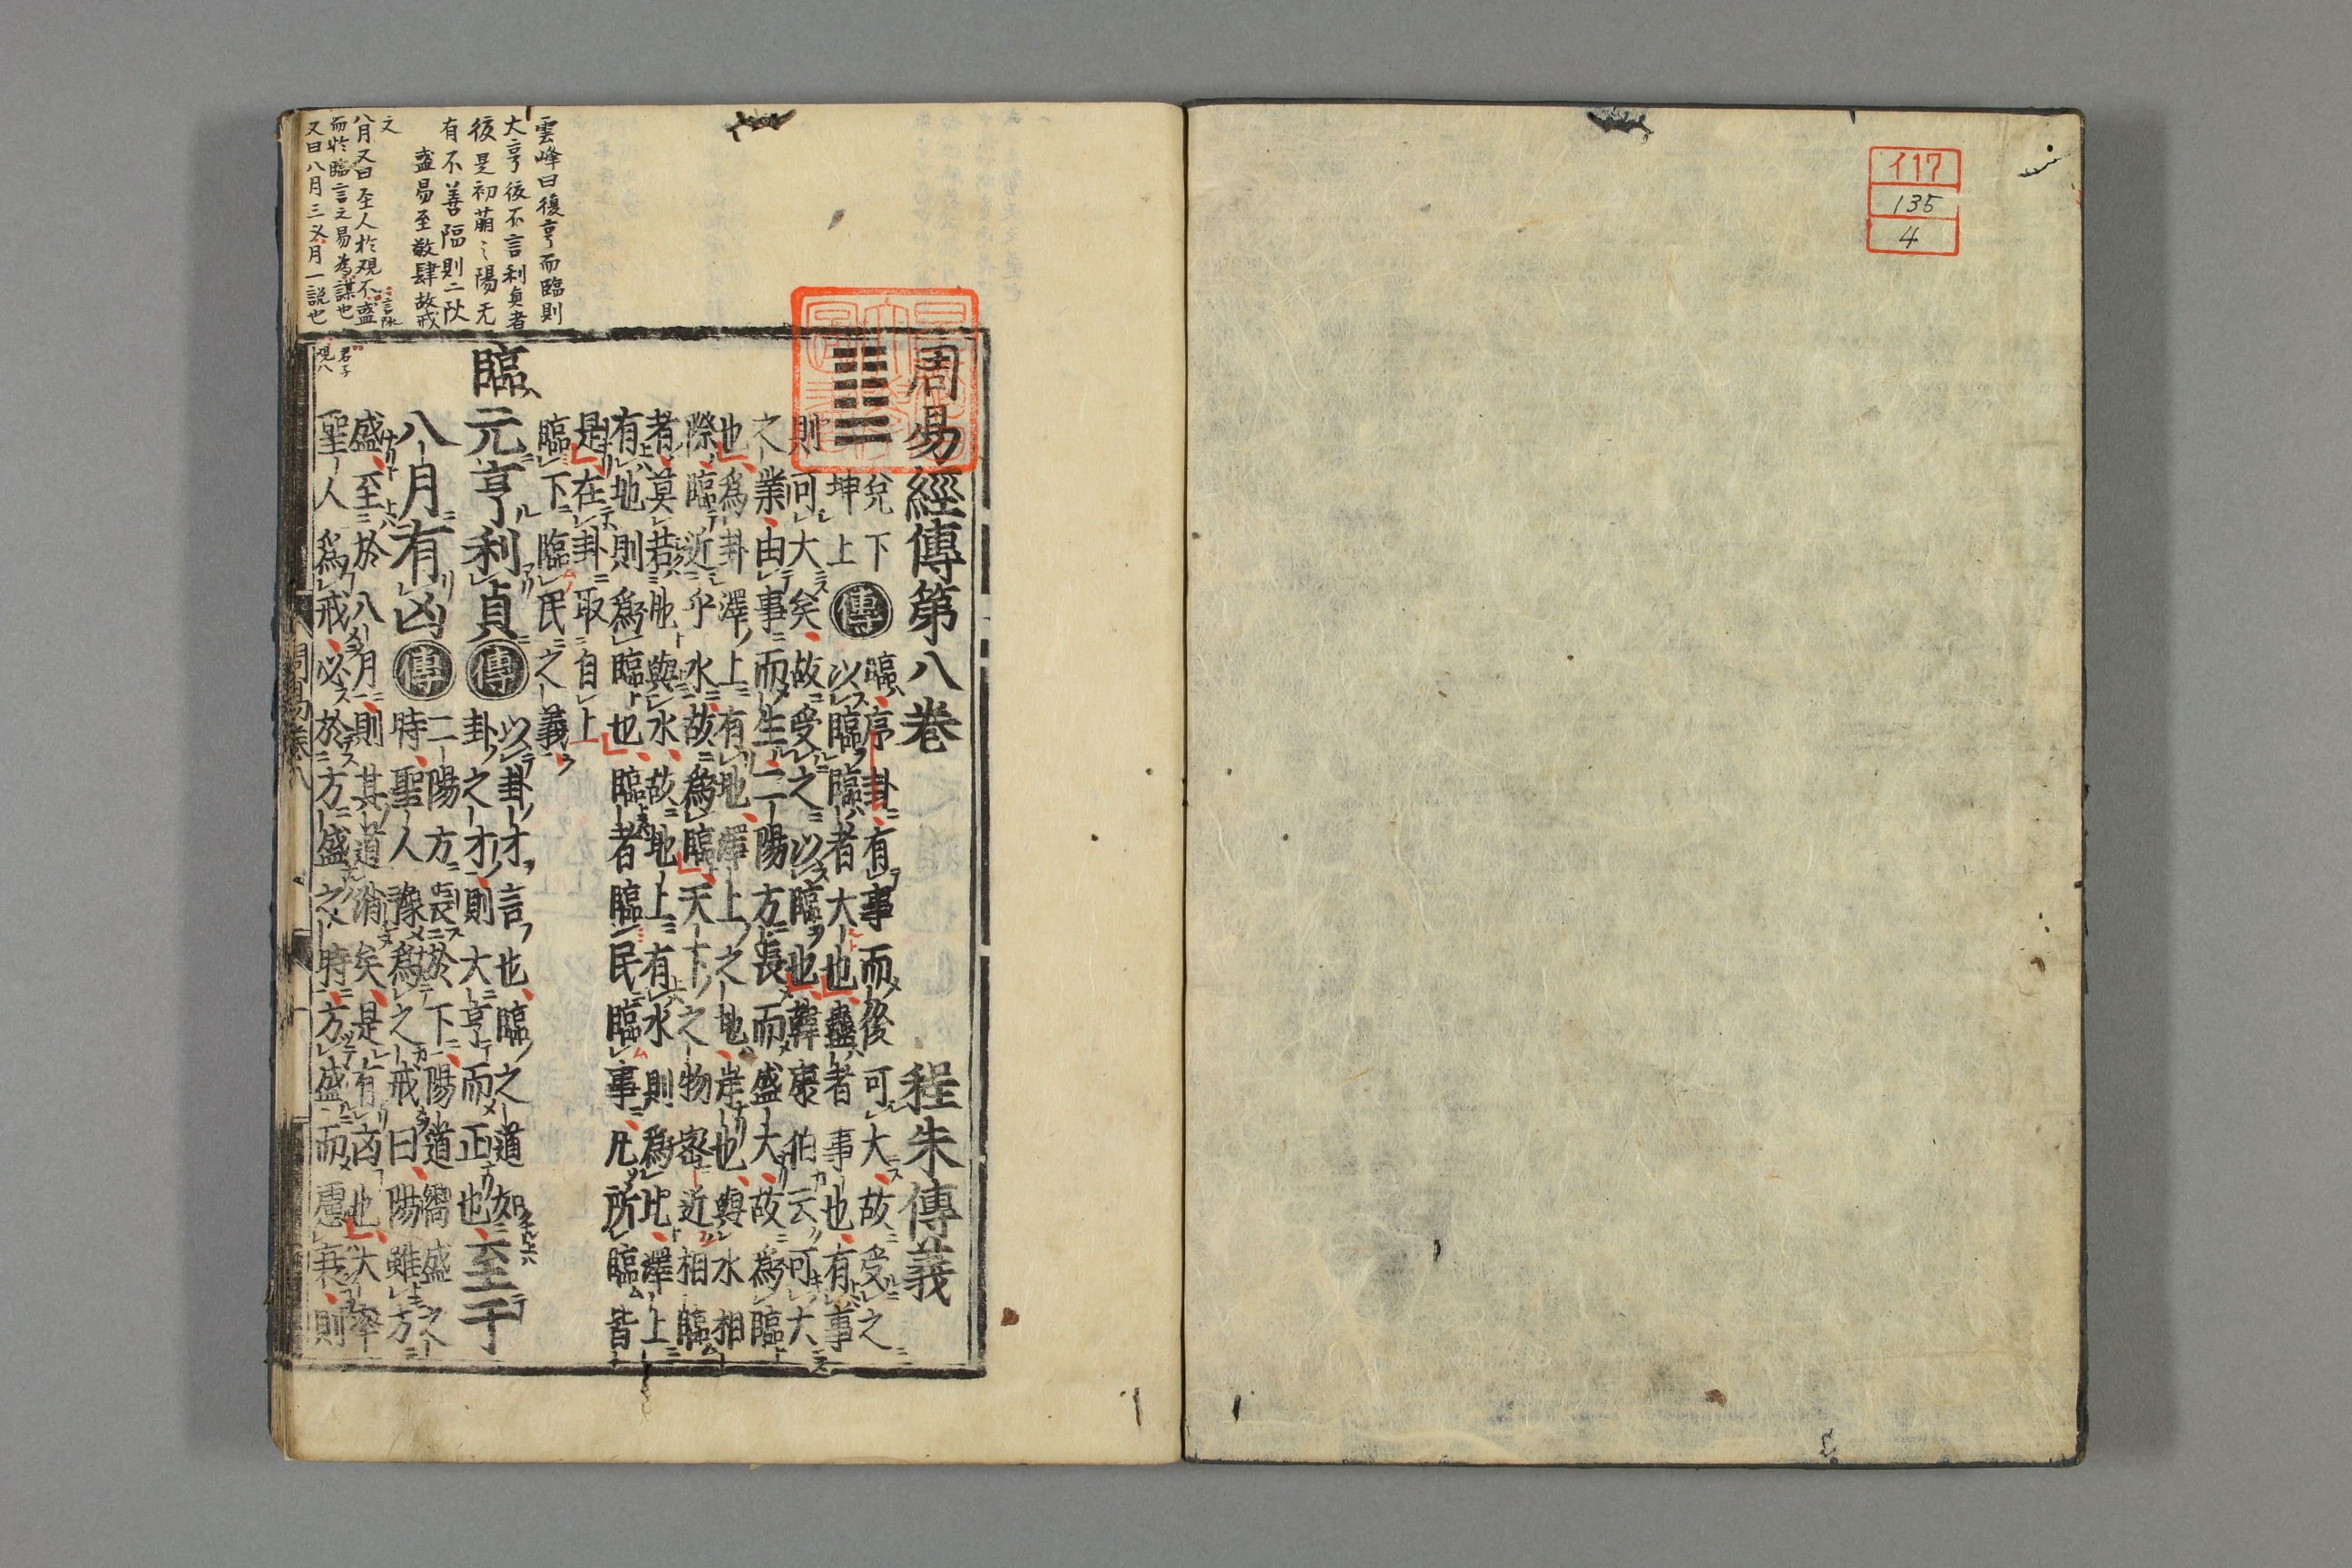 117
135
4
周易經傳第八卷　程朱傳義
兌下
坤上
傳
臨序卦有事而後可大故受之
以臨臨者大也蠱者事也有事
則可大矣故受之以臨也韓康伯云可大
之業由事而生二陽方長而盛大故爲臨
也爲卦澤上有地澤上之地岸也與水相
際臨近乎水故爲臨天下之物密近相臨
者莫若地與水故地上有水則爲比澤上
有地則爲臨也臨者臨民臨事凡所臨皆
是在卦取自上
臨下臨民之義
臨元亨利貞
傳
以卦才言也臨之道如
卦之才則大亨而正也
至于
八月有凶
傳
二陽方長於下陽道嚮盛之
時聖人豫爲之戒曰陽雖方
盛至於八月則其道消矣是有凶也大率
聖人爲戒必於方盛之時方盛而慮衰則
雲峰曰復亨而臨則
大亨後不言利貞者
後是初萠〻陽无
有不善臨則二阦
盛易至敬肆故戒
八月又曰至人於觀不盛
而於臨言之易為謀也
又曰八月三
月一説也
君子
觀八